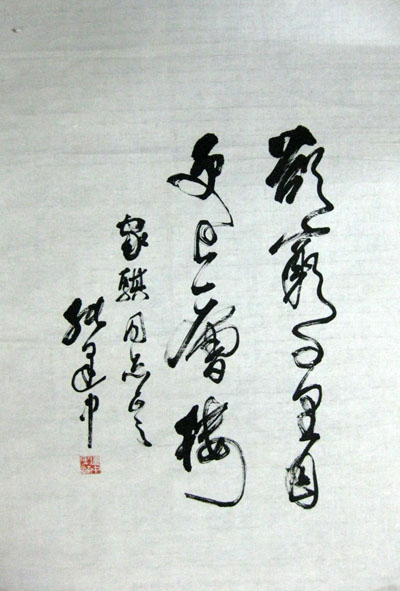 欲窮千里目
更上一層樓
家騏同志正之
建中